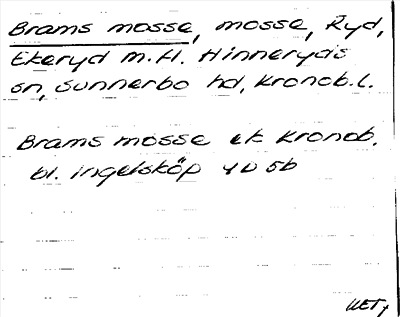 Brams mosse, mosse, Ryd,
Ekeryd m.fl. Hinneryds
sn, Sunnerbo hd, Kronob. l.
Brams mosse ek Kronob.
bl. Ingelsköp 4D 5b